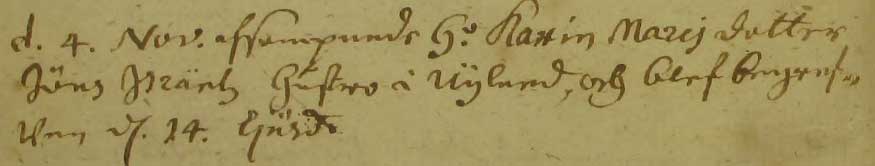 d. 4. Nov. afsompnade H:o Karin Marcj dotter
Jöns Isräels Hustro i Nÿland, och blef begraf-
wen d. 14. Ejusd.